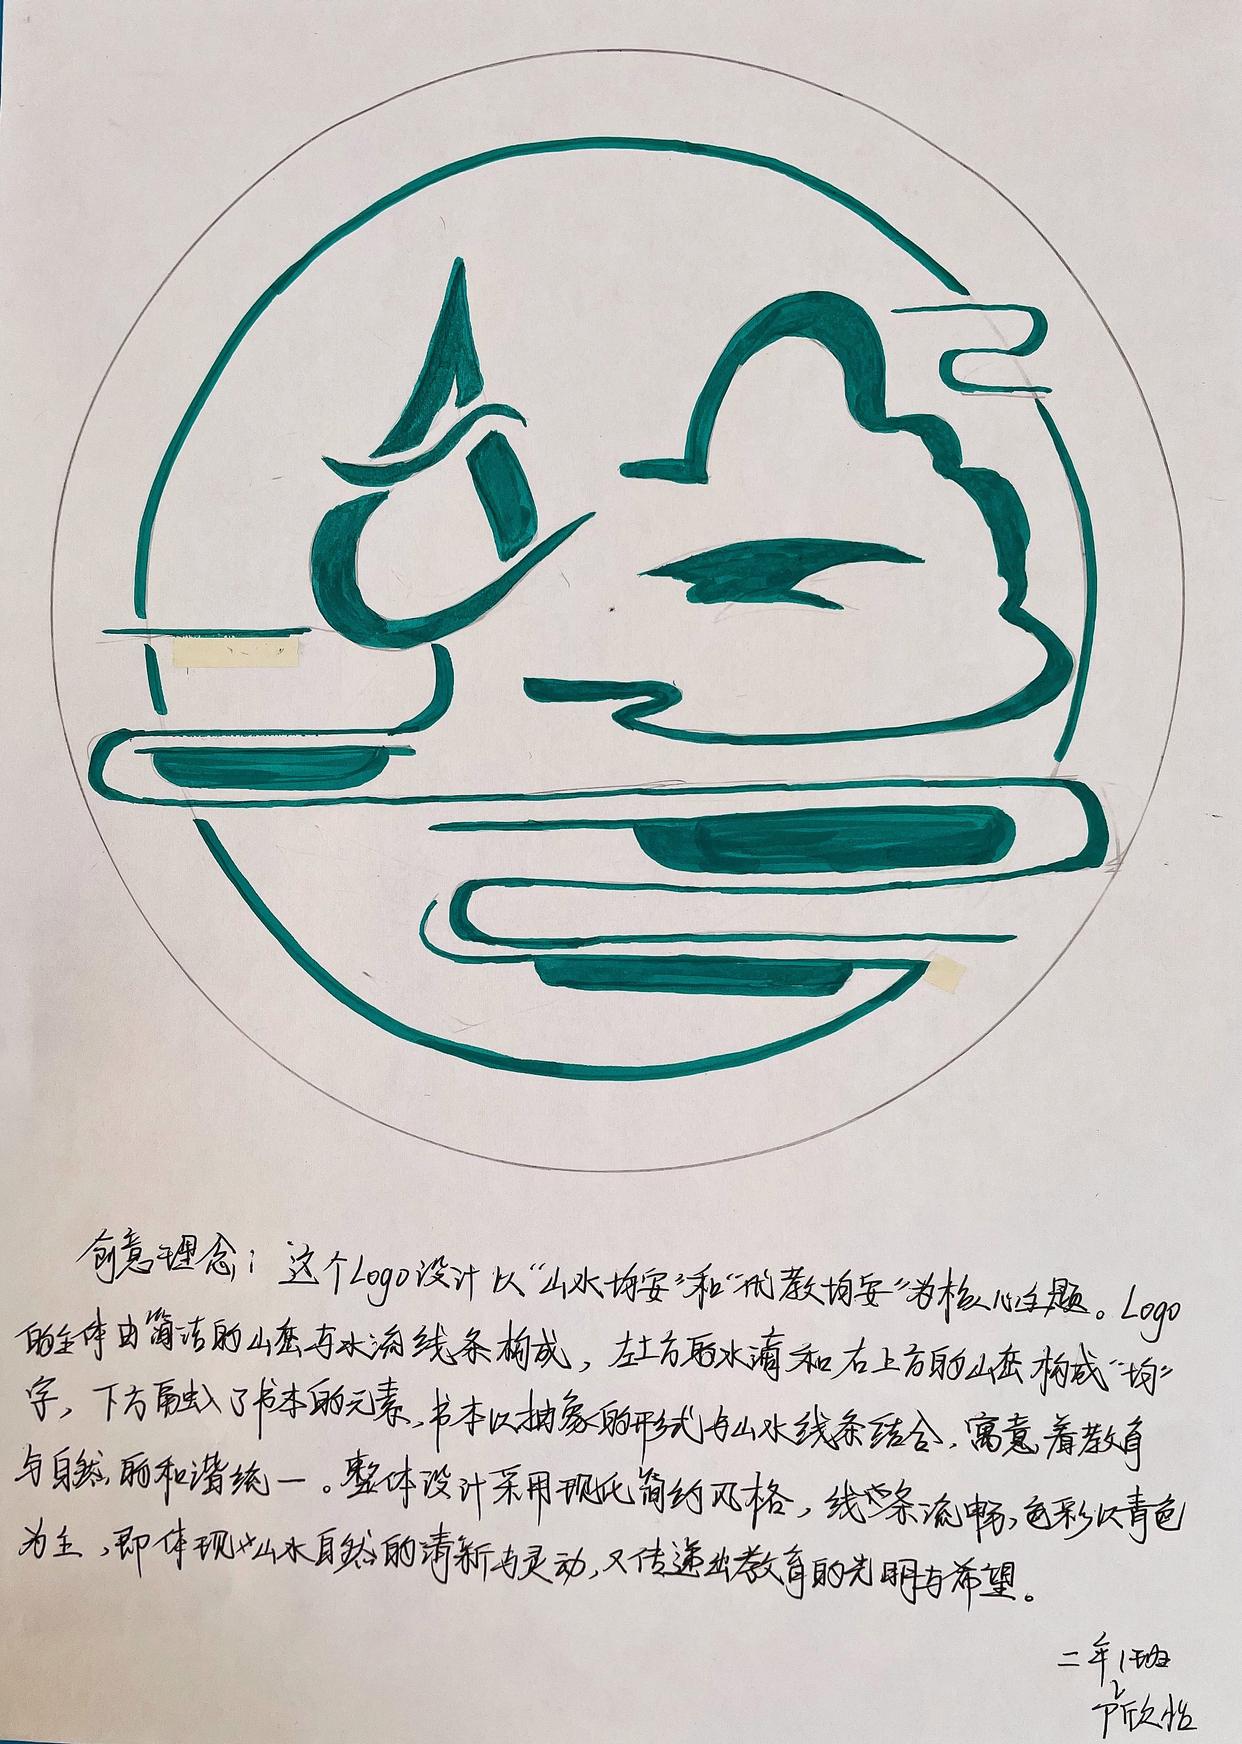 创意理念：这个Logo设计以“山水均安”和“形教均安”为核心主题。Logo
的主体由简洁的山峦与水流线条构成，左上方的水滴和右上方的山峦构成“均”
字，下方融入了书本的元素，书本以抽象的形式与山水线条结合，寓意着教育
与自然的和谐统一。整体设计采用现代简约风格，线条流畅，色彩以青色
为主，即体现出山水自然的清新与灵动，又传递出教育的光明与希望。
二年1班
欣怡